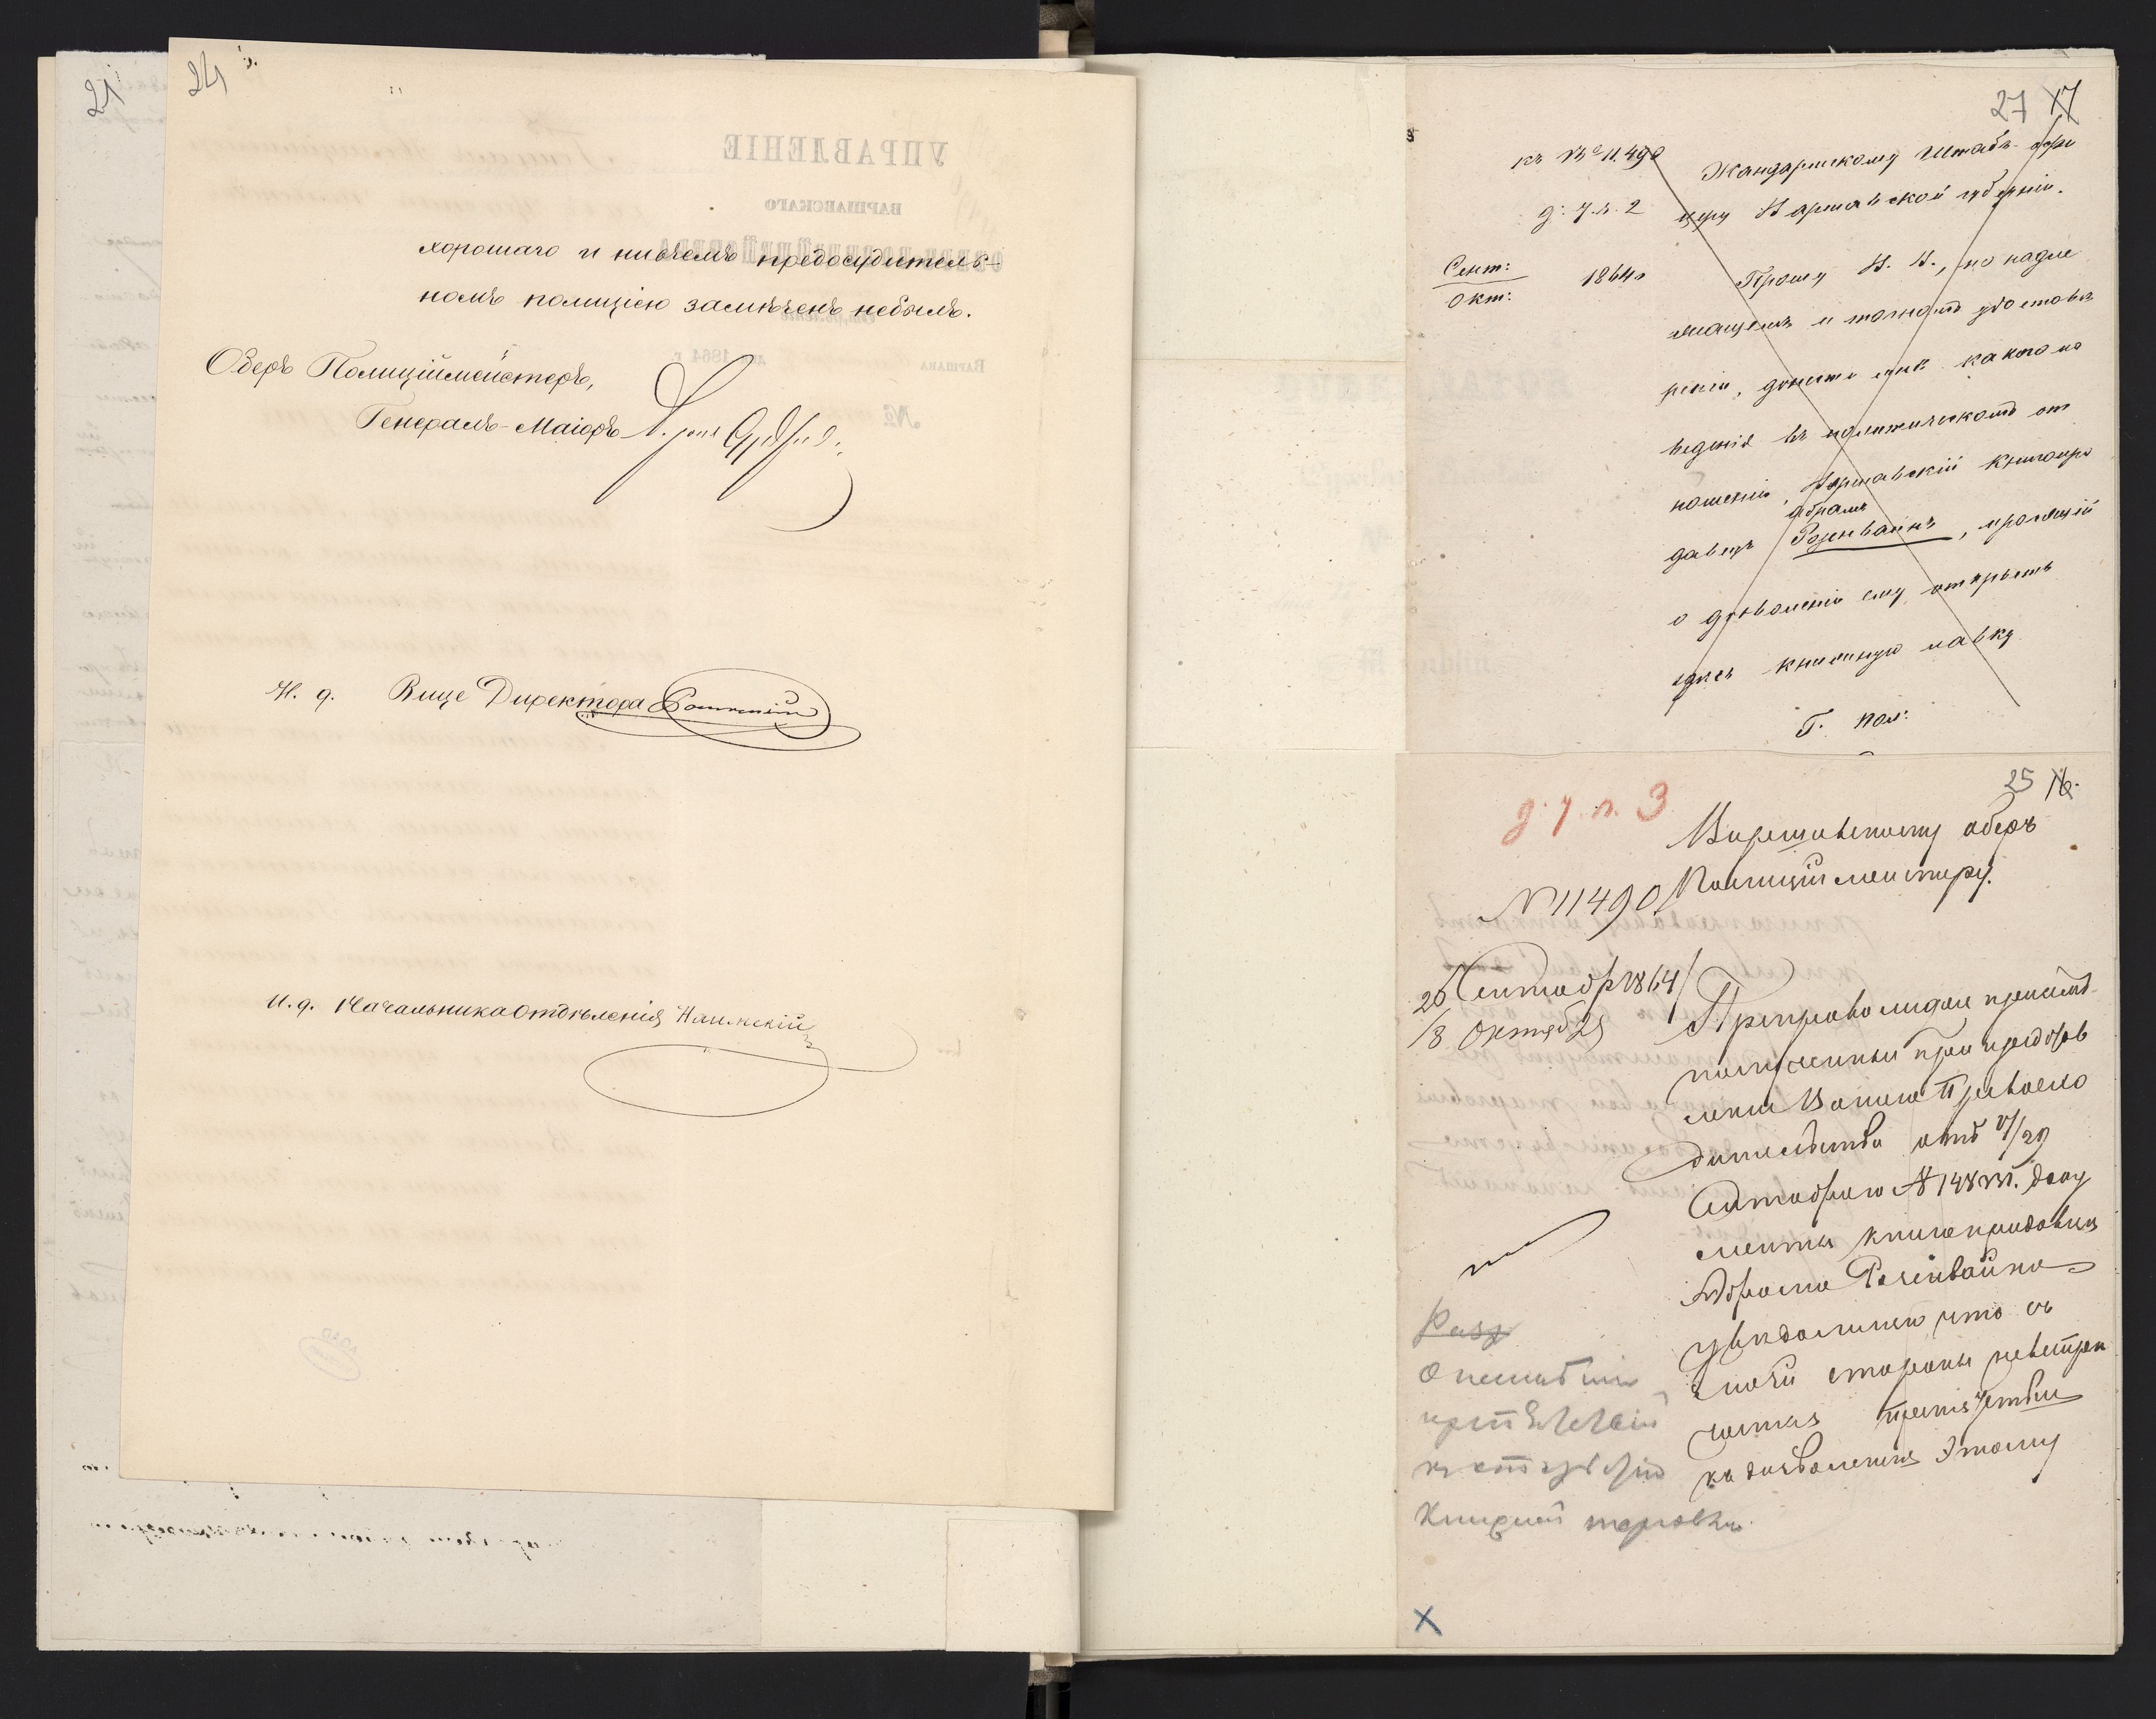 21
24
хорошаго и ни въ чемъ предосудитель-
номъ полиціею замѣченъ небылъ.
Оберъ Полиціймейстеръ,
Генералъ-Маіоръ
И. д. Вице Директора
И. д. Начальника Отдѣленія
27 17
къ № 11.490
д. 7. л. 2
Сент:
Окт: 1864 г
Жандармскому Штабъ-офи
церу Варшавской губерніи.
Прошу В. В., по надле
жащемъ и точномъ удостовѣ
реніи, донести мнѣ какого по
веденія въ политическомъ от
ношеніи, Варшавскій книгопро
Абрамъ
давецъ Розенвайнъ, просящій
о дозволеніи ему открыть
здѣсь книжную лавку
Г. пол:
25 16.
д. 7 л. 3
Варшавскому оберъ
Полиціймейстеру.
№ 11490
26 Сентябр 1864
8 Октября
Препровождая при семъ
полученные при предъяв
леніи Вашего Превосхо
дительства отъ 17/29
Сентября № 148 доку
менты книгопродавца
Абрама Розенвайна
увѣдомляю, что съ
моей стороны невстрѣ
чается препятствія
къ дозволенію этому
О неимѣніи
препятствій
къ открытію
Книжной торговли
X